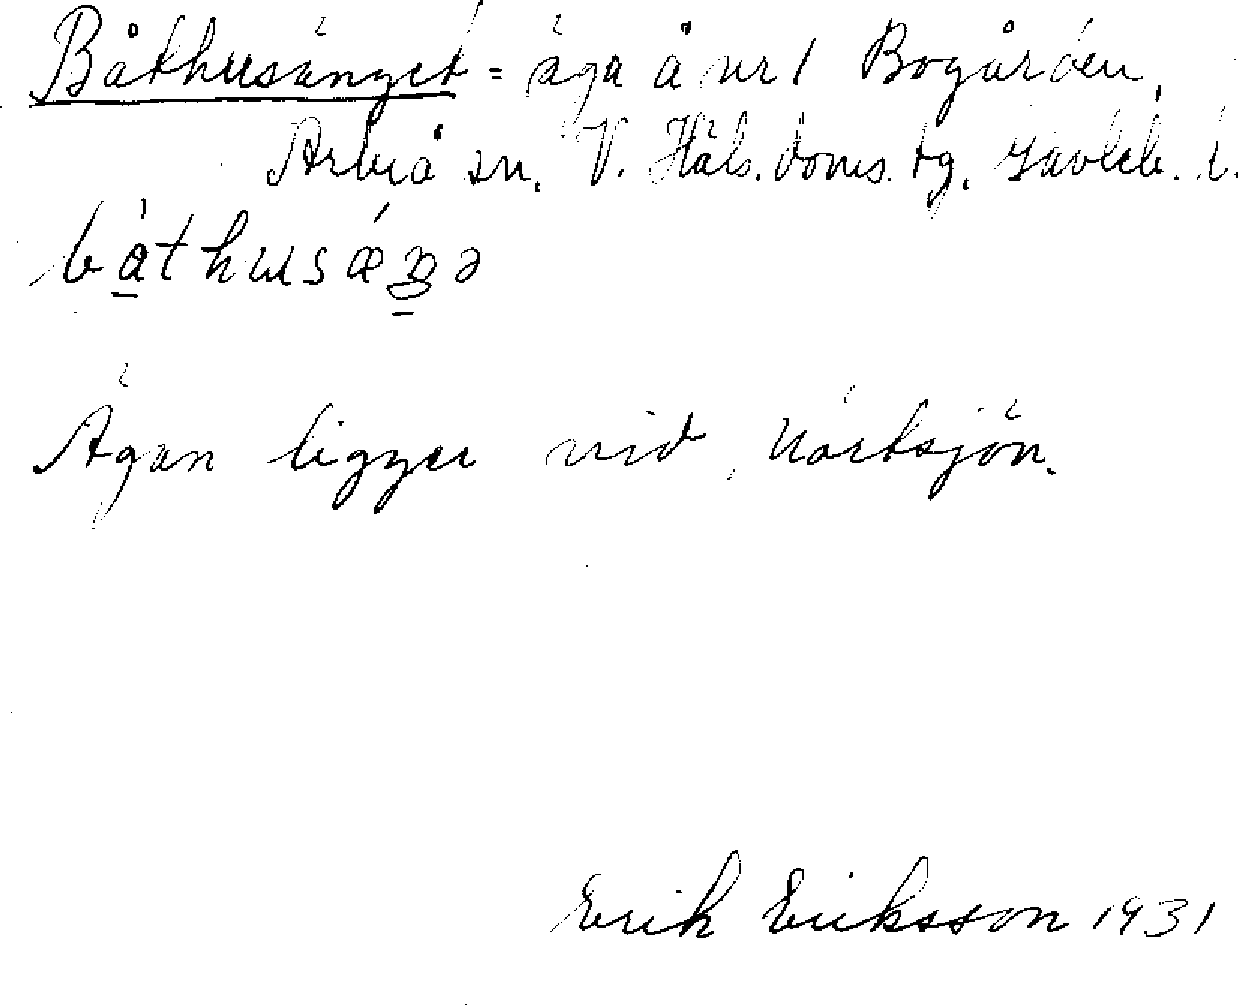 Båthusänget = äga å nr 1 Bogården,
Arbrå sn. V. Häls. doms. tg. Gävleb. l.
båthusæŋə
Ägan ligger vid Kårtsjön.
Erik Eriksson 1931